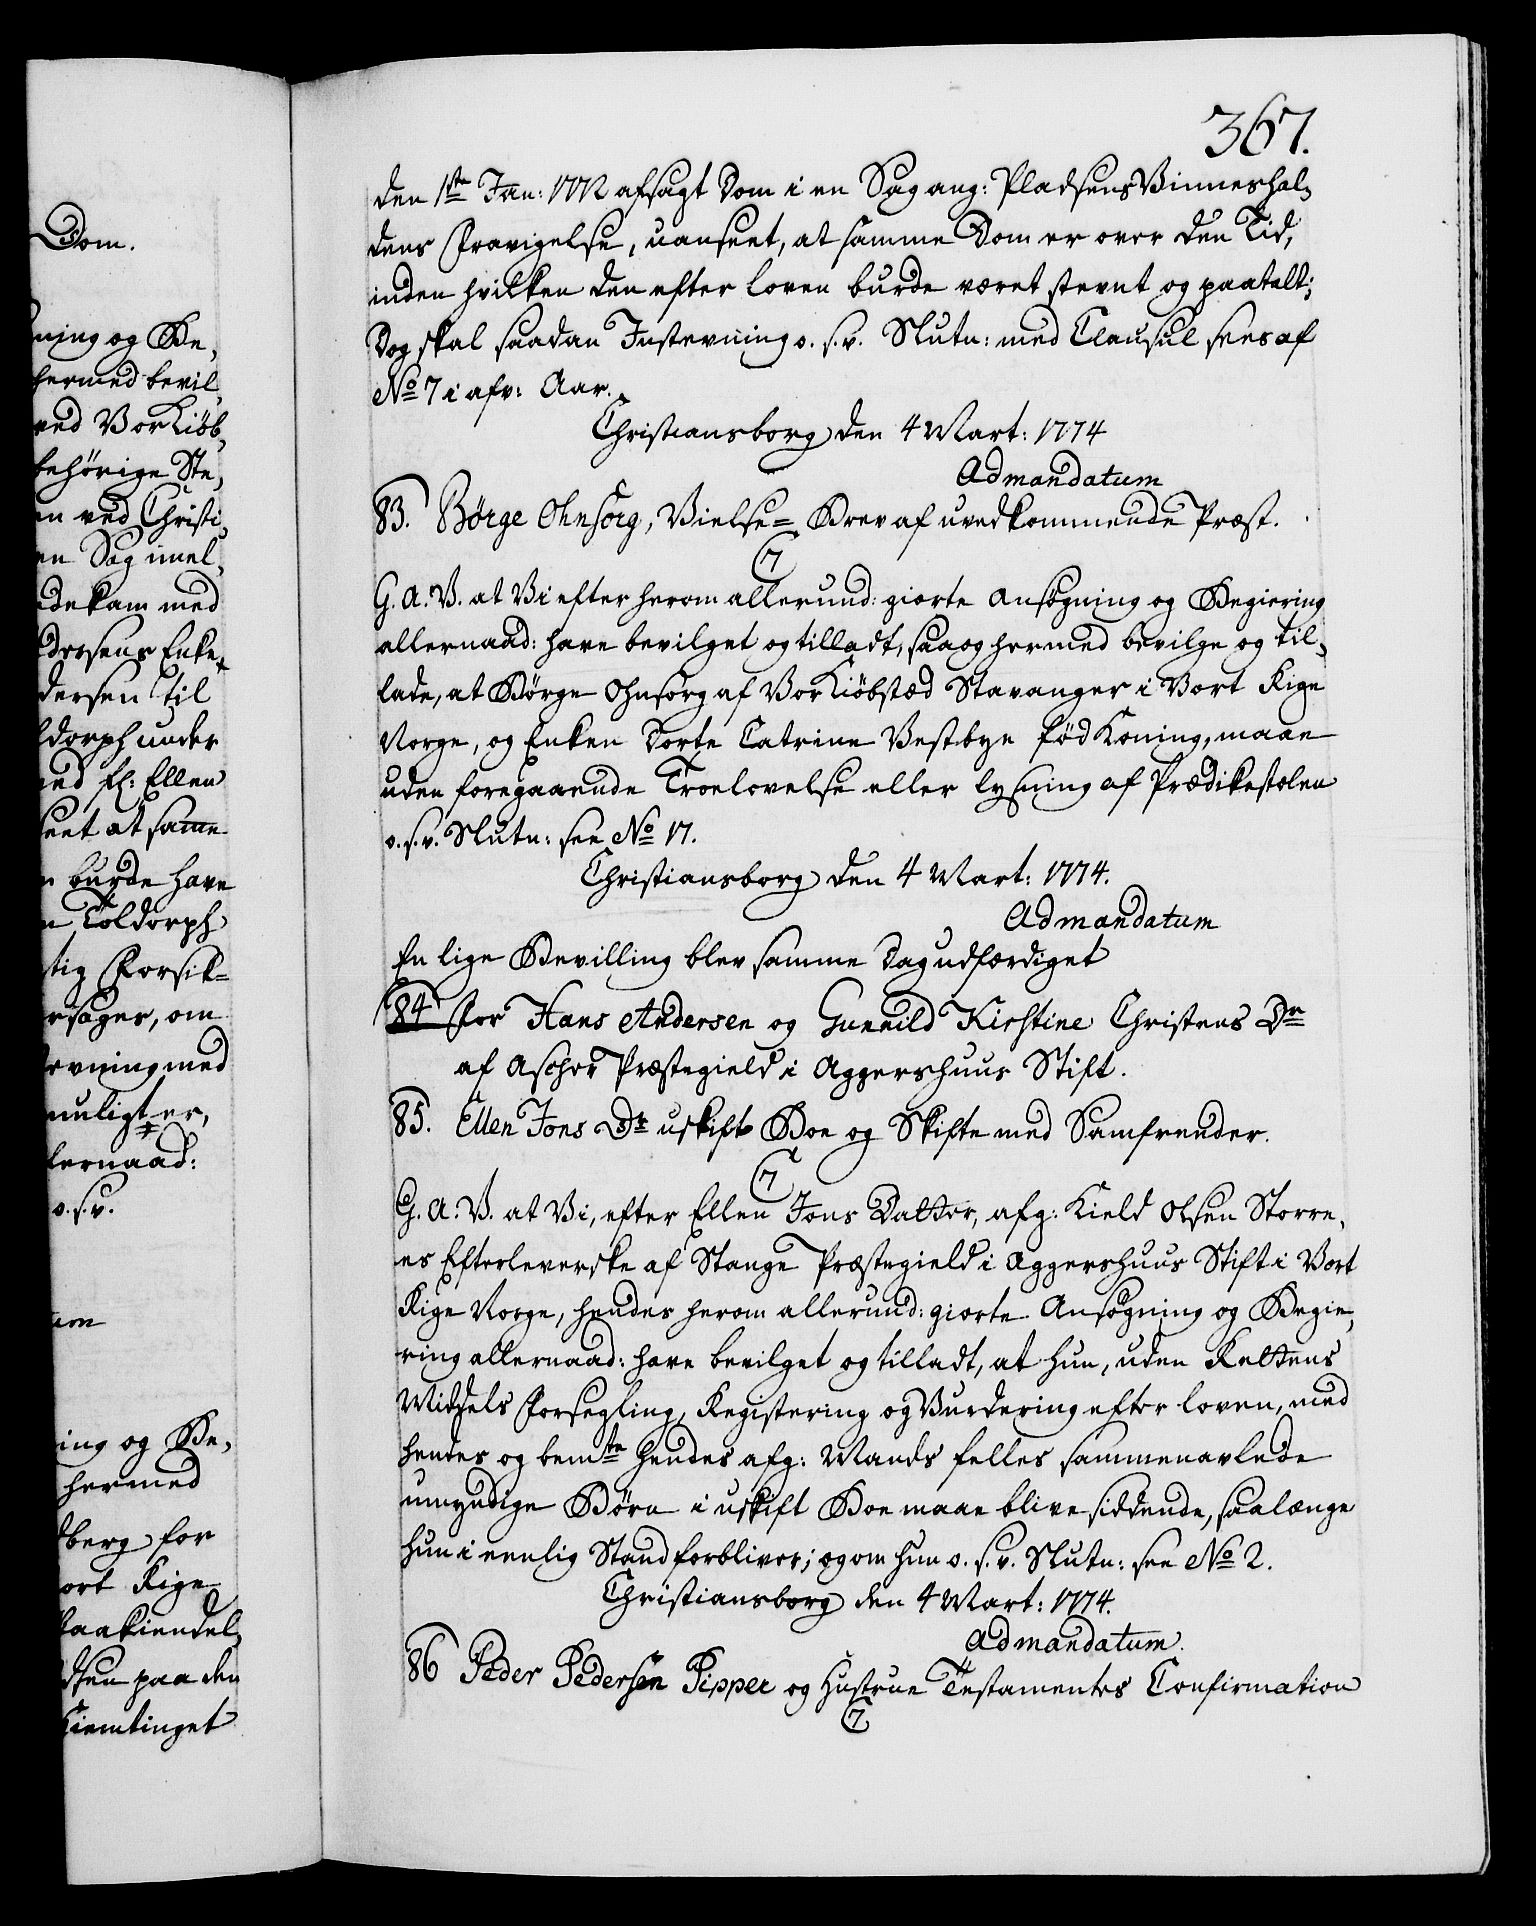 Dom.
ning og Be,
hermed bevil,
ved Vor Kiöb,
behörige Ste,
en ved Christi,
en Sag imel,
edekam med
dersens Enke
dersen til
ldorph under
ed sl: Ellen
eet at samme
n burde have
n Töldorph
tig Forsik=
rsöger, om
evning med
muligt er,
lernaad:
o.s.v.
um
ing og Be,
hermed
dberg for
ort Rige
Paakiendel,
dsten paa den
Hiemtinget
367.
den 1ste Jan: 1772 afsagt Dom i en Sag ang: Pladsens Vinneshal,
dens Fravigelse, uanseet, at samme Dom er over den Tid,
inden hvilken den efter loven burde været stevnt og paatalt;
Dog skal saadan Instevning o.s.v. Slutn: med Clausul sees af
No 7 i afv: Aar.
Christiansborg den 4 Mart: 1774
Admandatum
83. Börge Ohnsorg, Vielse=Brev af uvedkommende Præst.
C7
G.A.V. at Vi efter herom allerund: giorte Ansögning og Begiering
allernaad: have bevilget og tilladt, saa og hermed bevilge og til,
lade, at Börge Ohnsorg af Vor Kiöbstæd Stavanger i Vort Rige
Norge, og Enken Dorte Catrine Vestbye föd Koning, maae
uden foregaaende Troelovelse eller lysning af Prædikestolen
o.s.v. Slutn: see No 17.
Christiansborg den 4 Mart: 1774.
Admandatum
En lige Bevilling blev samme Dag udfærdiget
84 for Hans Andersen og Gunnild Kirstine Christens Dr
af Aschor Præstegield i Aggershuus Stift.
85. Ellen Jons Dr uskift Boe og Skifte med Samfrender.
C7
G.A.V. at Vi, efter Ellen Jons Datter, afg: Kield Olsen Storre,
es Efterleverske af Stange Præstegield i Aggershuus Stift i Vort
Rige Norge, hendes herom allerund: giorte Ansögning og Begie,
ring allernaad: have bevilget og tilladt, at hun, uden Rettens
Middels Forsegling, Registering og Vurdering efter loven, med
hendes og bemte hendes afg: Mands felles sammenavlede
umyndige Börn i uskift Boe maae blive siddende, saalænge
hun i eenlig Stand forbliver; og om hun o.s.v. Slutn: see No 2.
Christiansborg den 4 Mart: 1774.
Admandatum.
86 Peder Pedersen Pipper og Hustrue Testamentes Confirmation
C7